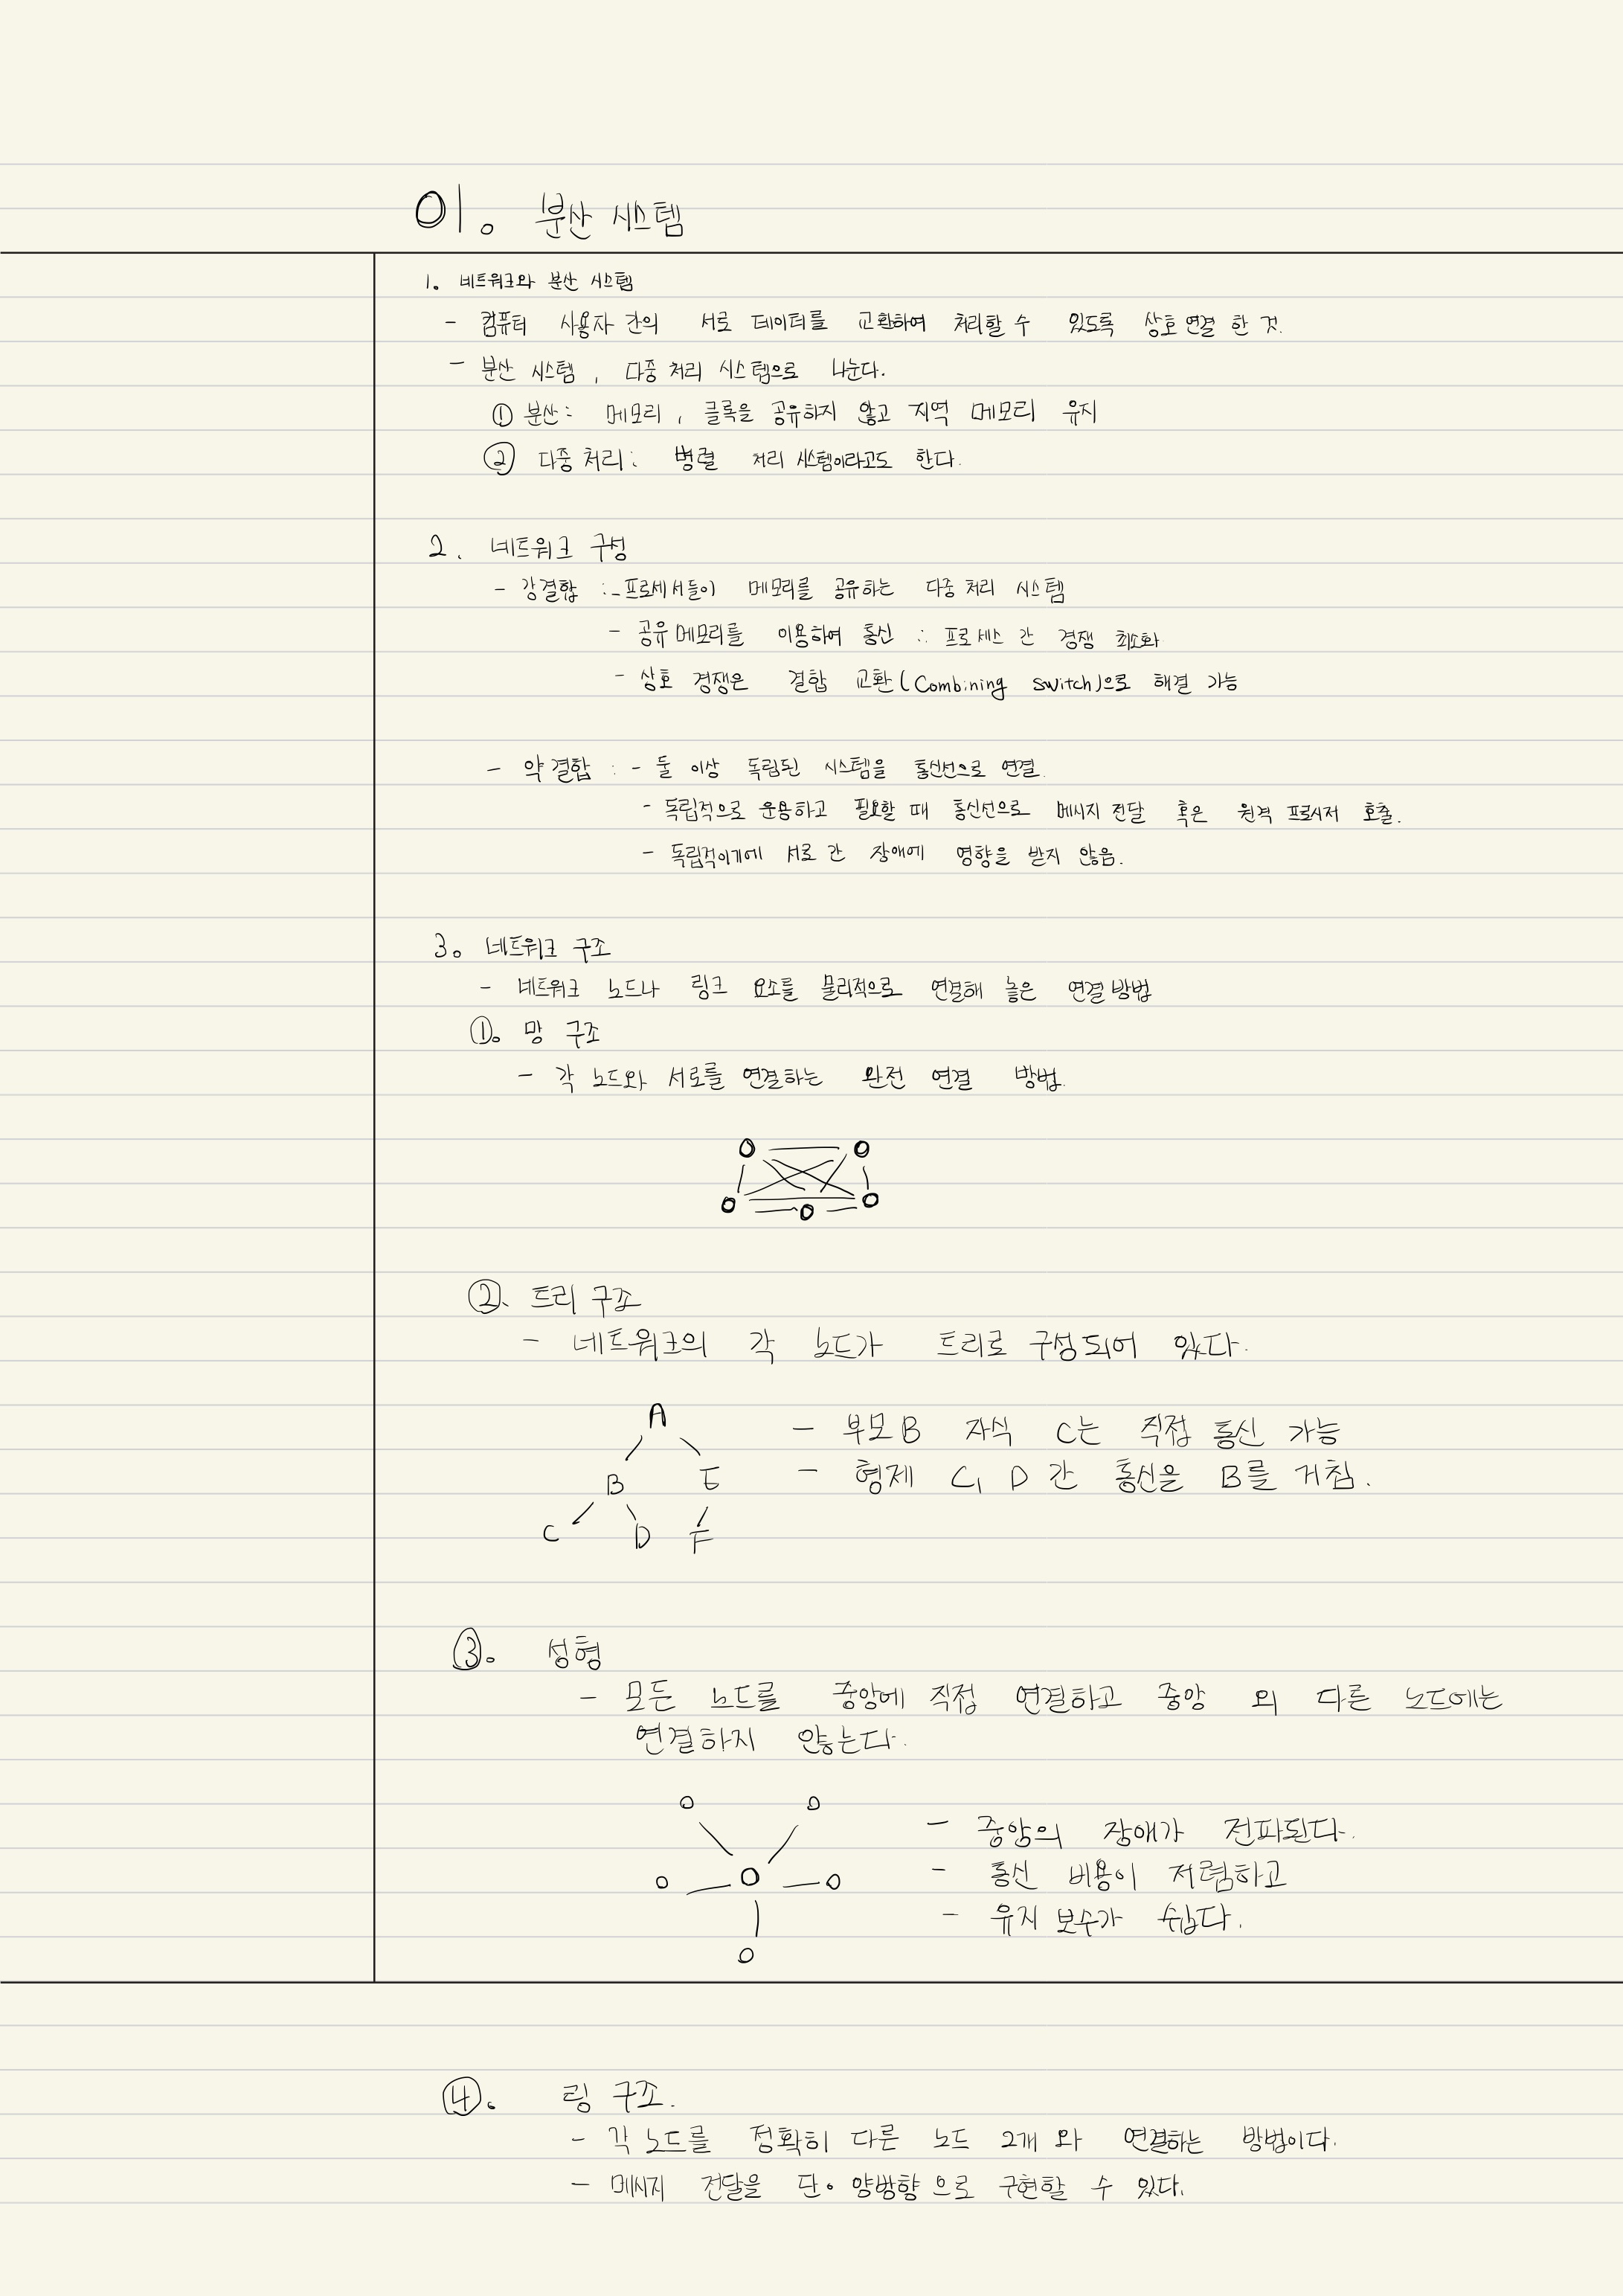 01。 분산 시스템
1。 네트워크와 분산 시스템
- 컴퓨터 사용자 간의 서로 데이터를 교환하여 처리할 수 있도록 상호 연결 한 것.
- 분산 시스템, 다중 처리 시스템으로 나눈다.
① 분산: 메모리, 클록을 공유하지 않고 지역 메모리 유지
② 다중 처리: 병렬 처리 시스템이라고도 한다.
2. 네트워크 구성
- 강결합 : - 프로세서들이 메모리를 공유하는 다중 처리 시스템
- 공유 메모리를 이용하여 통신 ∴ 프로세스 간 경쟁 최소화
- 상호 경쟁은 결합 교환(Combining switch)으로 해결 가능
- 약결합 : - 둘 이상 독립된 시스템을 통신선으로 연결.
- 독립적으로 운용하고 필요할 때 통신선으로 메시지 전달 혹은 원격 프로시저 호출.
- 독립적이기에 서로 간 장애에 영향을 받지 않음.
3。 네트워크 구조
- 네트워크 노드나 링크 요소를 물리적으로 연결해 놓은 연결 방법
①。 망 구조
- 각 노드와 서로를 연결하는 완전 연결 방법.
②. 트리 구조
- 네트워크의 각 노드가 트리로 구성되어 있다.
A
B E
C D F
- 부모 B 자식 C는 직접 통신 가능
- 형제 C, D 간 통신을 B를 거침.
③。 성형
- 모든 노드를 중앙에 직접 연결하고 중앙 외 다른 노드에는
연결하지 않는다.
- 중앙의 장애가 전파된다.
- 통신 비용이 저렴하고
- 유지 보수가 쉽다.
④. 링 구조.
- 각 노드를 정확히 다른 노드 2개 와 연결하는 방법이다.
- 메시지 전달을 단·양방향 으로 구현할 수 있다.